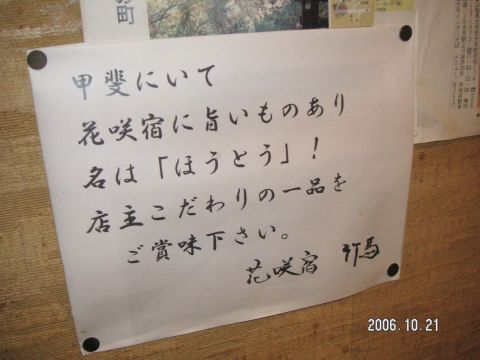 町
甲斐にいて
花咲宿に旨いものあり
名は「ほうとう」！
店主こだわりの一品を
ご賞味下さい。
花咲宿
2006.10.21